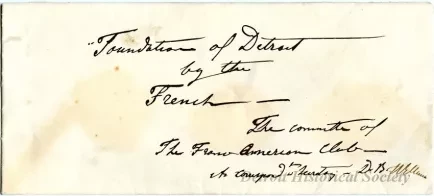 "Foundation of Detroit
by the
French —
The committe of
The Franco American Club
Detroit Historical Society